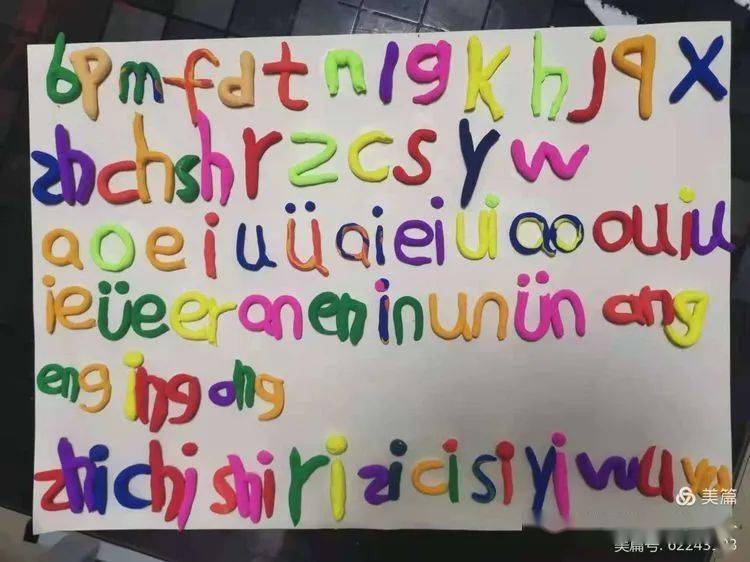 b p m f d t n l g k h j q x
zh ch sh r z c s y w
a o e i u ü ai ei ui ao ou iu
ie üe er an en in un ün ang
eng ing ong
zhi chi shi ri zi ci si yi wu
美篇
美篇号: 62243